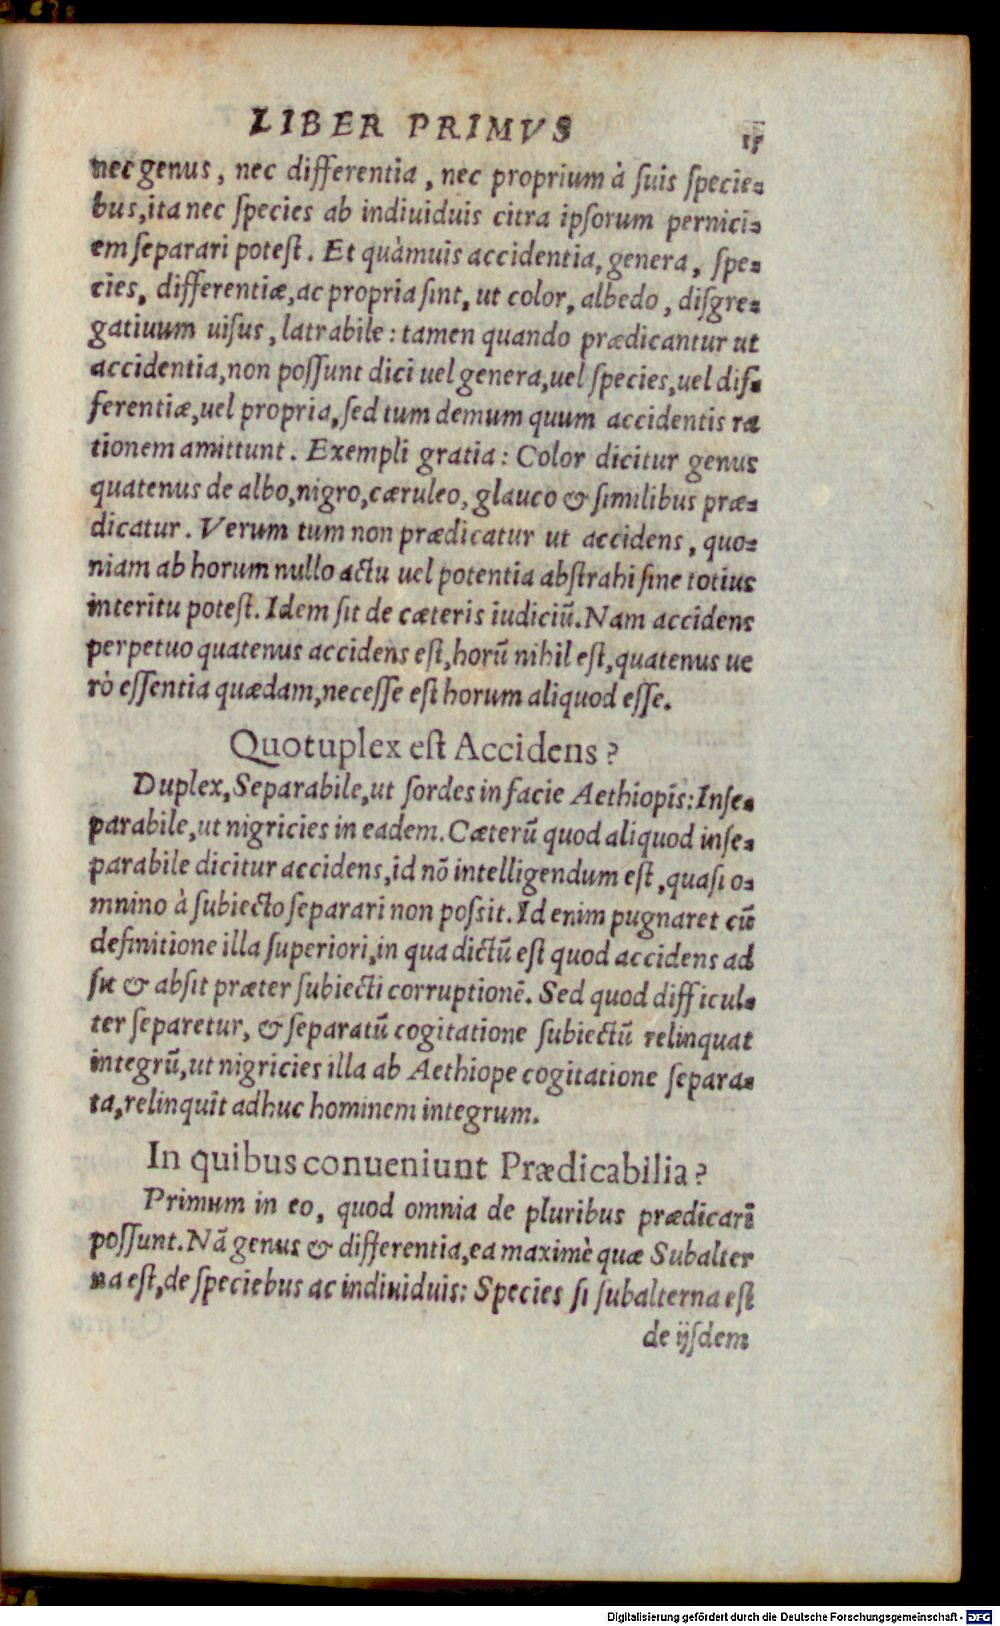 LIBER PRIMVS 15
nec genus, nec differentia, nec proprium à ſuis ſpecie-
bus, ita nec ſpecies ab indiuiduis citra ipſorum pernici-
em ſeparari poteſt. Et quàmuis accidentia, genera, ſpe-
cies, differentiæ, ac propria ſint, ut color, albedo, diſgre-
gatiuum uiſus, latrabile: tamen quando prædicantur ut
accidentia, non poſſunt dici uel genera, uel ſpecies, uel dif-
ferentiæ, uel propria, ſed tum demum quum accidentis ra
tionem amittunt. Exempli gratia: Color dicitur genus
quatenus de albo, nigro, cæruleo, glauco & ſimilibus præ-
dicatur. Verum tum non prædicatur ut accidens, quo-
niam ab horum nullo actu uel potentia abſtrahi ſine totius
interitu poteſt. Idem ſit de cæteris iudiciū. Nam accidens
perpetuo quatenus accidens eſt, horū nihil eſt, quatenus ue
rò eſſentia quædam, neceſſe eſt horum aliquod eſſe.
Quotuplex eſt Accidens?
Duplex, Separabile, ut ſordes in facie Aethiopis: Inſe-
parabile, ut nigricies in eadem. Cæterū quod aliquod inſe-
parabile dicitur accidens, id nō intelligendum eſt, quaſi o-
mnino à ſubiecto ſeparari non poſſit. Id enim pugnaret cū
definitione illa ſuperiori, in qua dictū eſt quod accidens ad
ſit & abſit præter ſubiecti corruptionē. Sed quod difficul-
ter ſeparetur, & ſeparatū cogitatione ſubiectū relinquat
integrū, ut nigricies illa ab Aethiope cogitatione ſepara-
ta, relinquit adhuc hominem integrum.
In quibus conueniunt Prædicabilia?
Primum in eo, quod omnia de pluribus prædicari
poſſunt. Nā genus & differentia, ea maximè quæ Subalter
na eſt, de ſpeciebus ac indiuiduis: Species ſi ſubalterna eſt
de ijſdem
Digitalisierung gefördert durch die Deutsche Forschungsgemeinschaft - DFG